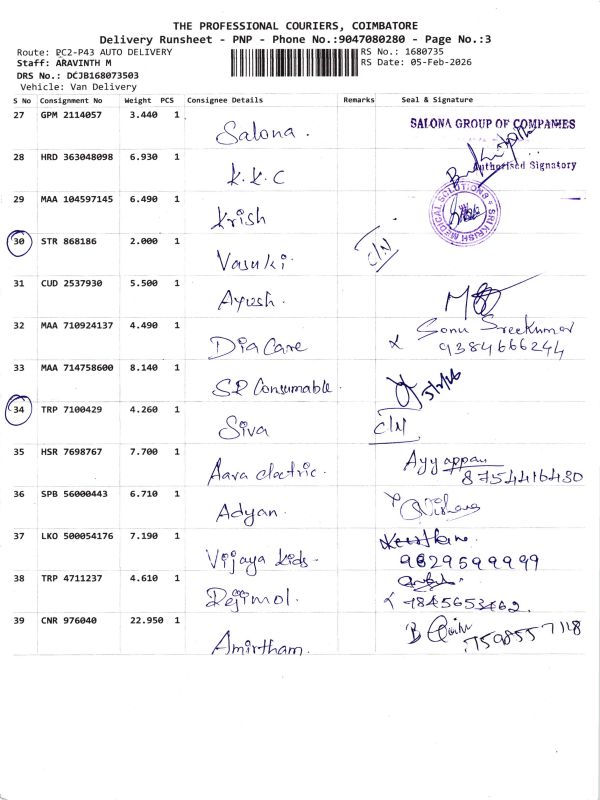 THE PROFESSIONAL COURIERS, COIMBATORE
Delivery Runsheet - PNP - Phone No.:9047080280 - Page No.:3
Route: PC2-P43 AUTO DELIVERY
RS No.: 1680735
Staff: ARAVINTH M
RS Date: 05-Feb-2026
DRS No.: DCJB168073503
Vehicle: Van Delivery
S No Consignment No Weight PCS Consignee Details Remarks Seal & Signature
27 GPM 2114057 3.440 1 Salona. SALONA GROUP OF COMPANIES
Authorised Signatory
28 HRD 363048098 6.930 1 K.K.C
29 MAA 104597145 6.490 1 Krish SRI KRISH MEDICAL SOLUTIONS
30 STR 868186 2.000 1 Vasuki. C/N
31 CUD 2537930 5.500 1 Ayush.
32 MAA 710924137 4.490 1 Dia Care Sonu Sreekumar
9384666244
33 MAA 714758600 8.140 1 SR Consumable. 5/2/26
34 TRP 7100429 4.260 1 Siva C/N
35 HSR 7698767 7.700 1 Aara electric. Ayyappan
8754416430
36 SPB 56000443 6.710 1 Adyan.
37 LKO 500054176 7.190 1 Vijaya kids.
9629599999
38 TRP 4711237 4.610 1 Rejimol.
9845653462.
39 CNR 976040 22.950 1 Amirtham. B
7598557118